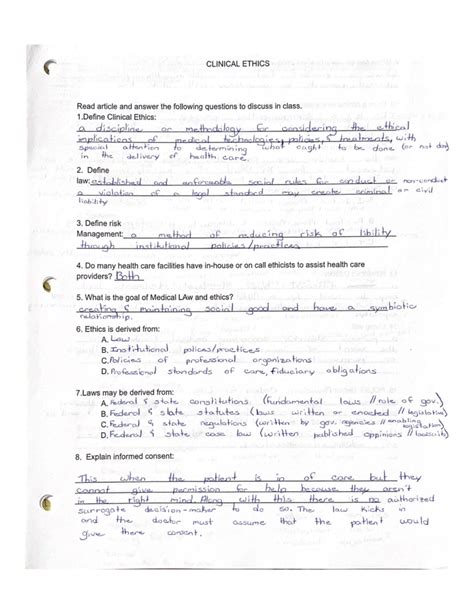 CLINICAL ETHICS
Read article and answer the following questions to discuss in class.
1.Define Clinical Ethics:
a discipline or methodology for considering the ethical
implications of medical technologies, policies, & treatments, with
special attention to determining what ought to be done (or not do)
in the delivery of health care.
2. Define
law: established and enforceable social rules for conduct or non-conduct
a violation of a legal standard may create criminal or civil
liability
3. Define risk
Management: a method of reducing risk of libility
through institutional policies/practices
4. Do many health care facilities have in-house or on call ethicists to assist health care
providers? Both
5. What is the goal of Medical LAw and ethics?
creating & maintaining social good and have a symbiotic
relationship.
6. Ethics is derived from:
A. Law
B. Institutional polices/practices
C. Policies of professional organizations
D. Professional standards of care, fiduciary obligations
7.Laws may be derived from:
A. Federal & state constitutions (fundamental laws // role of gov.)
B. Federal & state statutes (laws written or enacted // legislative)
C. Federal & state regulations (written by gov. agencies // enabling
legistation)
D. Federal & state case law (written published oppinions // lawsuits)
8. Explain informed consent:
This when the patient is in of care but they
cannot give permission for help because they aren't
in the right mind. Along with this there is no authorized
surrogate decision-maker to do so. The law kicks in
and the doctor must assume that the patient would
give there consent.